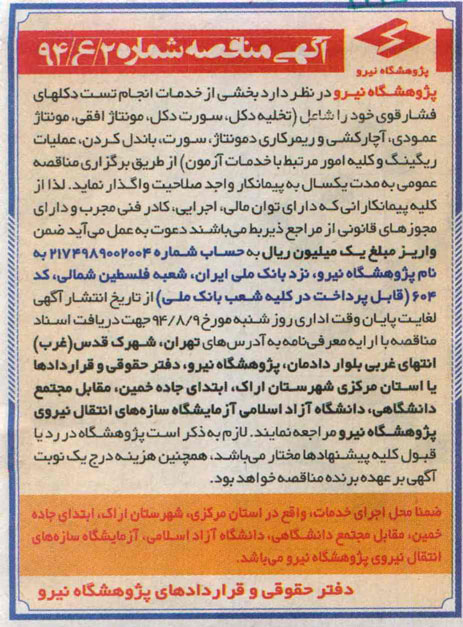 آگهی مناقصه شماره ۹۴/ع/۲
پژوهشگاه نیرو
پژوهشگاه نیرو در نظر دارد بخشی از خدمات انجام تست دکلهای
فشار قوی خود را شامل (تخلیه دکل، سورت دکل، مونتاژ افقی، مونتاژ
عمودی، آچارکشی و ریمرکاری دمونتاژ، سورت، باندل کردن، عملیات
ریگینگ و کلیه امور مرتبط با خدمات آزمون) از طریق برگزاری مناقصه
عمومی به مدت یکسال به پیمانکار واجد صلاحیت واگذار نماید. لذا از
کلیه پیمانکارانی که دارای توان مالی، اجرایی، کادر فنی مجرب و دارای
مجوزهای قانونی از مراجع ذیربط می‌باشند دعوت به عمل می‌آید ضمن
واریز مبلغ یک میلیون ریال به حساب شماره ۲۱۷۴۹۸۹۰۰۲۰۰۴ به
نام پژوهشگاه نیرو، نزد بانک ملی ایران، شعبه فلسطین شمالی، کد
۶۰۴ (قابل پرداخت در کلیه شعب بانک ملی) از تاریخ انتشار آگهی
لغایت پایان وقت اداری روز شنبه مورخ ۹۴/۸/۹ جهت دریافت اسناد
مناقصه با ارایه معرفی‌نامه به آدرس‌های تهران، شهرک قدس(غرب)
انتهای غربی بلوار دادمان، پژوهشگاه نیرو، دفتر حقوقی و قراردادها
یا استان مرکزی شهرستان اراک، ابتدای جاده خمین، مقابل مجتمع
دانشگاهی، دانشگاه آزاد اسلامی آزمایشگاه سازه‌های انتقال نیروی
پژوهشگاه نیرو مراجعه نمایند. لازم به ذکر است پژوهشگاه در رد یا
قبول کلیه پیشنهادها مختار می‌باشد، همچنین هزینه درج یک نوبت
آگهی بر عهده برنده مناقصه خواهد بود.
ضمنا محل اجرای خدمات، واقع در استان مرکزی، شهرستان اراک، ابتدای جاده
خمین، مقابل مجتمع دانشگاهی، دانشگاه آزاد اسلامی، آزمایشگاه سازه‌های
انتقال نیروی پژوهشگاه نیرو می‌باشد.
دفتر حقوقی و قراردادهای پژوهشگاه نیرو